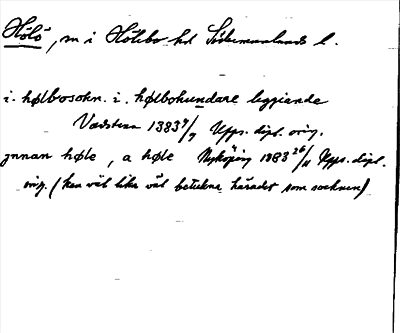 Hölö, sn i Hölebo hd Södermanlands l.
i. hølbosokn. i. hølbohundare liggiande
Vadstena 1383 9/7 Upps. dipl. orig.
jnnan høle, a høle Nyköping 1383 26/11 Upps. dipl.
orig. (kan väl lika väl beteckna häradet som socknen)